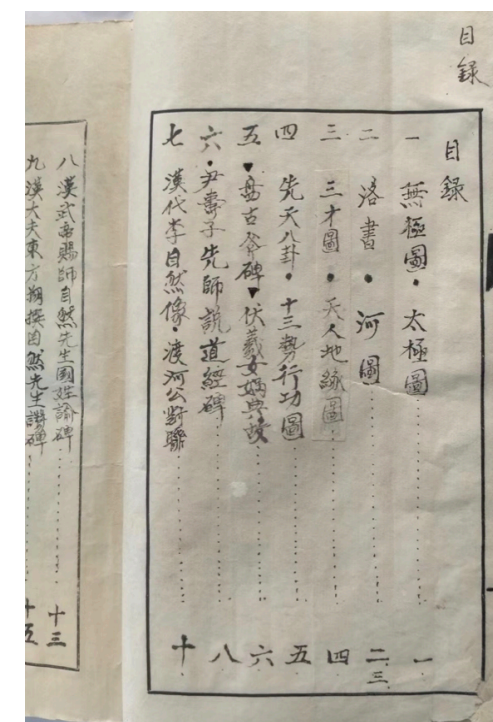 目録
目録
一 無極圖·太極圖 一
二 洛書·河圖 二 三
三 三才圖·天人地緣圖 四
四 先天八卦·十三勢行功圖 五
五 盤古斧碑 伏羲女媧典故 六
六 尹壽子先師説道經碑 八
七 漢代李自然像·渡河公對聯 十
八 漢武帝賜師自然先生國姓諭碑 十三
九 漢大夫東方朔撰自然先生讃碑 十五